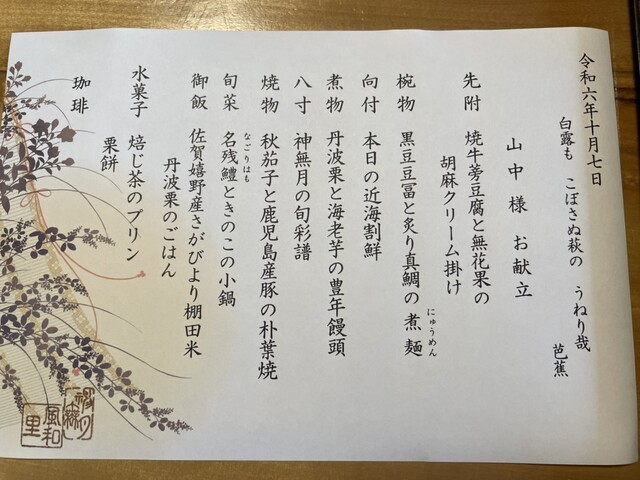 令和六年十月七日
白露も こぼさぬ萩の うねり哉
芭蕉
山中様 お献立
先附 焼牛蒡豆腐と無花果の
胡麻クリーム掛け
椀物 黒豆豆冨と炙り真鯛の煮麺
にゅうめん
向付 本日の近海割鮮
煮物 丹波栗と海老芋の豊年饅頭
八寸 神無月の旬彩譜
焼物 秋茄子と鹿児島産豚の朴葉焼
旬菜 名残鱧ときのこの小鍋
なごりはも
御飯 佐賀嬉野産さがびより棚田米
丹波栗のごはん
水菓子 焙じ茶のプリン
栗餅
珈琲
風和
里